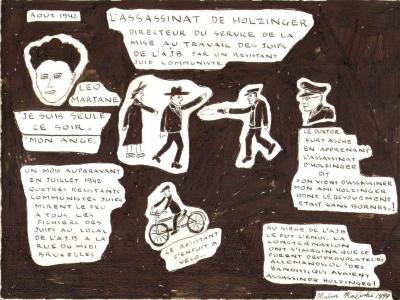 AOUT 1942
L'ASSASSINAT DE HOLZINGER
DIRECTEUR DU SERVICE DE LA
MISE AU TRAVAIL DES JUIFS
DE L'A.J.B. PAR UN RESISTANT
JUIF COMMUNISTE
LEO
MARJANE
JE SUIS SEULE
CE SOIR,
MON ANGE.
UN MOIS AUPARAVANT
EN JUILLET 1942
QUATRES RESISTANTS
COMMUNISTES JUIFS
MIRENT LE FEU
A TOUS LES
FICHIERS DES
JUIFS AU LOCAL
DE L'A.J.B A LA
RUE DU MIDI
BRUXELLES
LE RESISTANT
S'ENFUIT A
VELO
LE DOKTOR
KURT ASCHE
EN APPRENANT
L'ASSASSINAT
D'HOLZINGER
DIT
"ON VIENT D'ASSASSINER
MON AMI HOLZINGER
DONT LE DEVOUEMENT
ETAIT SANS BORNES!
AU SIEGE DE L'A.J.B
CE FUT L'EMOI, LA
CONSTERNATION
ON S'IMAGINA QUE CE
FURENT DES PROVOCATEURS
ALLEMANDS OU "DES
BANDITS, QUI AVAIENT
ASSASSINER HOLZINGER!
1999